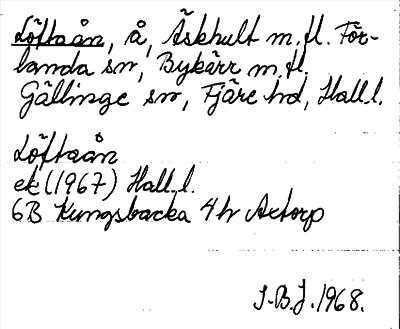 Löftaån, å, Äskhult m.fl. För-
landa sn, Bykärr m.fl.
Gällinge sn, Fjäre hd, Hall.l.
Löftaån
ek (1967) Hall.l.
6B Kungsbacka 4h Axtorp
S.B.J. 1968.